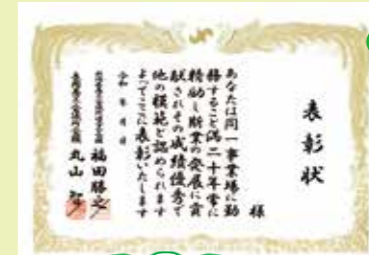 表彰状
様
あなたは同一事業場に勤
務すること満二十年常に
精励し斯業の発展に貢
献されその成績優秀で
他の模範と認められます
よつてここに表彰いたします
令和 年 月 日
福田勝之
丸山 智